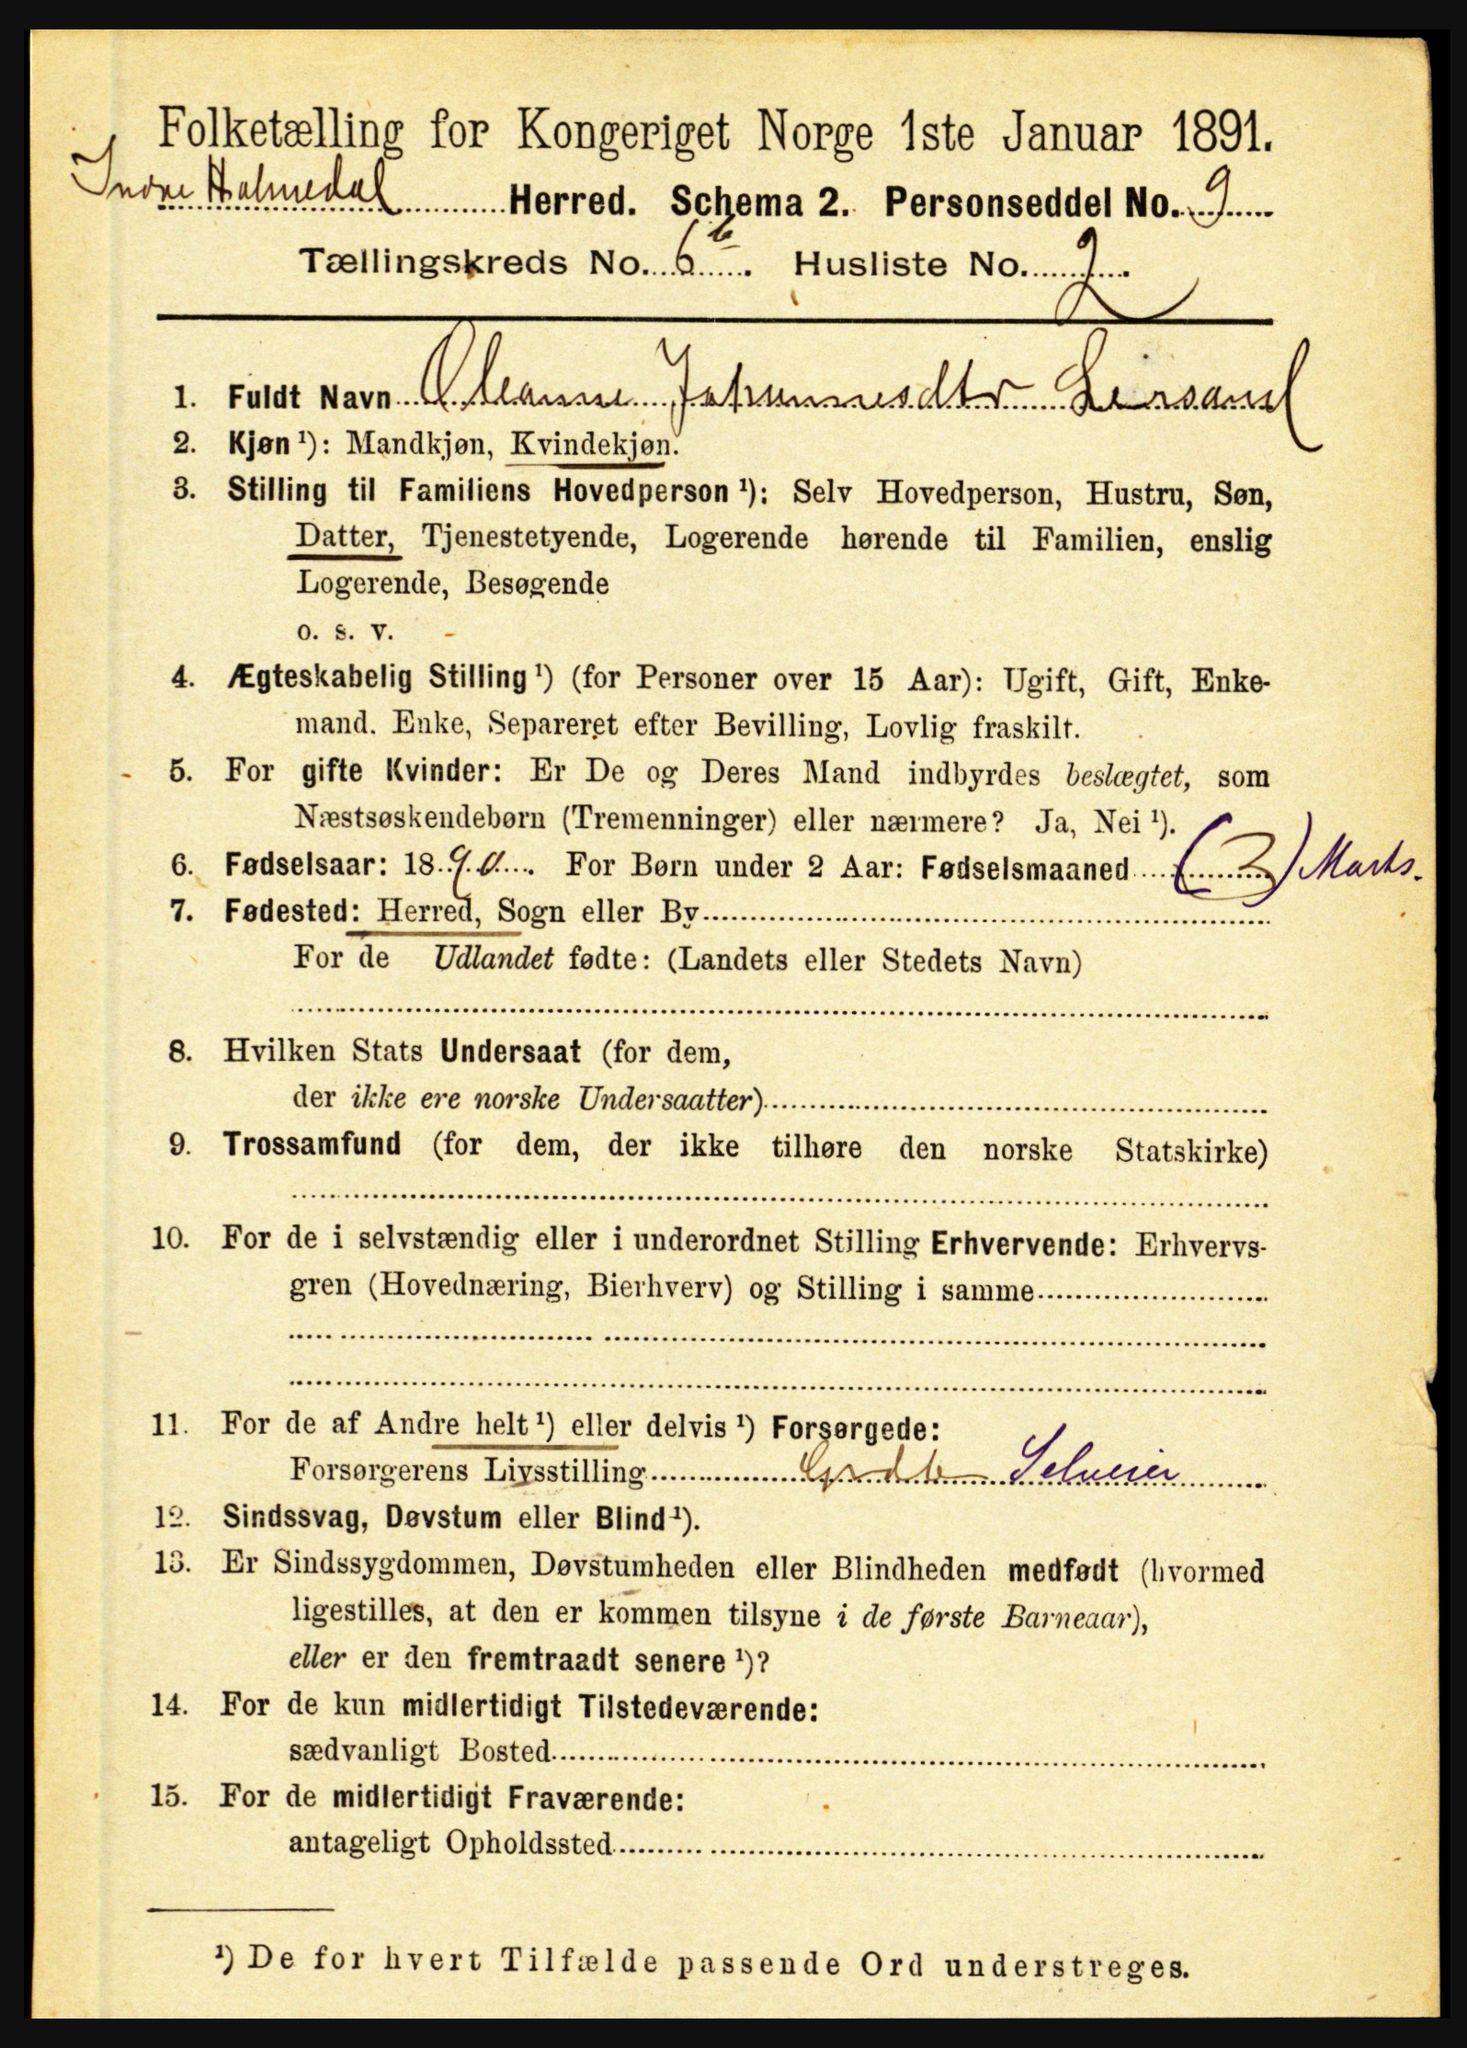 Folketælling for Kongeriget Norge 1ste Januar 1891.
Indre Holmedal Herred. Schema 2. Personseddel No. 9
Tællingskreds No. 6 b. Husliste No. 2.
1. Fuldt Navn Oleanne Johannesdtr Leirsand
2. Kjøn ¹): Mandkjøn, Kvindekjøn.
3. Stilling til Familiens Hovedperson ¹): Selv Hovedperson, Hustru, Søn,
Datter, Tjenestetyende, Logerende hørende til Familien, enslig
Logerende, Besøgende
o. s. v.
4. Ægteskabelig Stilling ¹) (for Personer over 15 Aar): Ugift, Gift, Enke-
mand. Enke, Separeret efter Bevilling, Lovlig fraskilt.
5. For gifte Kvinder: Er De og Deres Mand indbyrdes beslægtet, som
Næstsøskendebørn (Tremenninger) eller nærmere? Ja, Nei ¹).
6. Fødselsaar: 1890. For Børn under 2 Aar: Fødselsmaaned (3) Marts.
7. Fødested: Herred, Sogn eller By
For de Udlandet fødte: (Landets eller Stedets Navn)
8. Hvilken Stats Undersaat (for dem,
der ikke ere norske Undersaatter)
9. Trossamfund (for dem, der ikke tilhøre den norske Statskirke)
10. For de i selvstændig eller i underordnet Stilling Erhvervende: Erhvervs-
gren (Hovednæring, Bierhverv) og Stilling i samme
11. For de af Andre helt ¹) eller delvis ¹) Forsørgede:
Forsørgerens Livsstilling Grdbr Selveier
12. Sindssvag, Døvstum eller Blind ¹).
13. Er Sindssygdommen, Døvstumheden eller Blindheden medfødt (hvormed
ligestilles, at den er kommen tilsyne i de første Barneaar),
eller er den fremtraadt senere ¹)?
14. For de kun midlertidigt Tilstedeværende:
sædvanligt Bosted
15. For de midlertidigt Fraværende:
antageligt Opholdssted
¹) De for hvert Tilfælde passende Ord understreges.